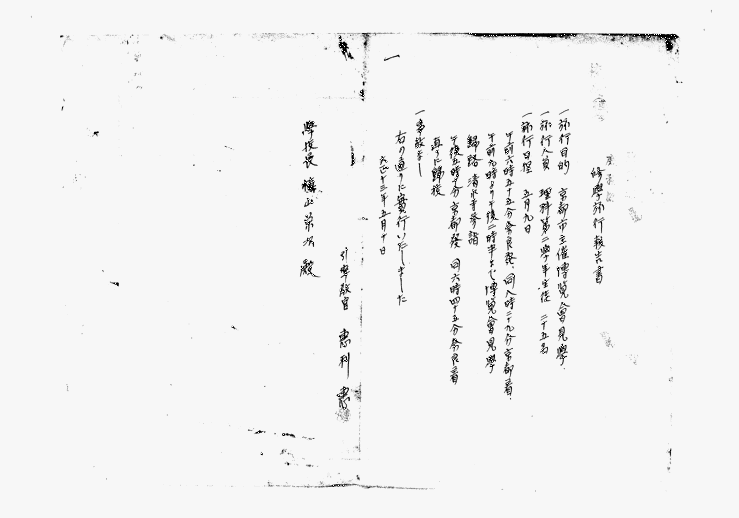 修學旅行報告書
一旅行目的 京都市主催博覧會見學.
一旅行人員 理科第二學年生徒 二十五名
一旅行日程 五月九日
午前六時五十五分奈良發、同八時二十九分京都着.
午前九時より午後二時半まで博覧會見學
歸路 清水寺参詣
午後五時 分京都發 同六時四十五分奈良着
直ちに歸校
一事故なし
右の通りに實行いたしました
大正十三年五月十日
引率教官
學校長 槇山榮次殿